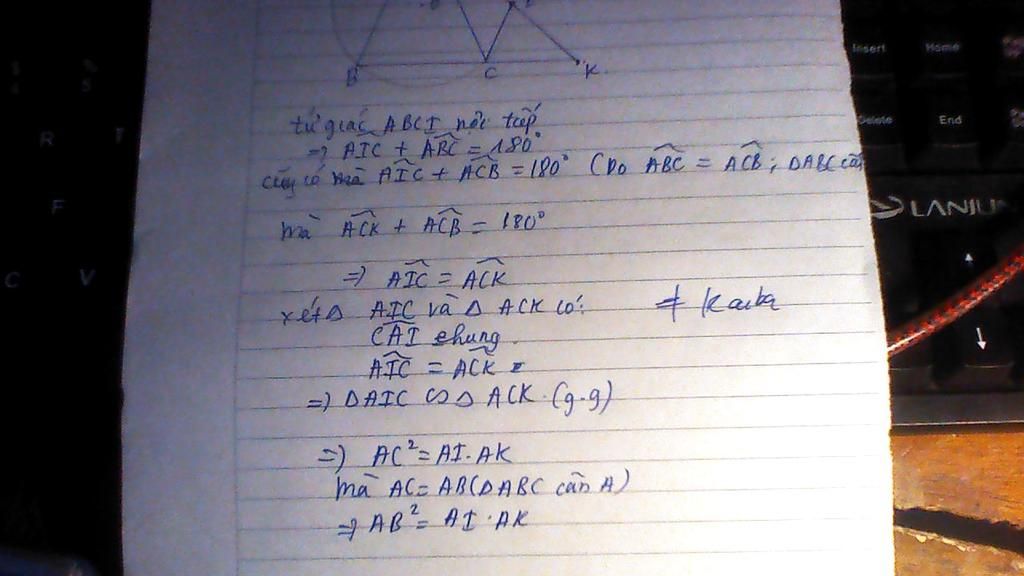 B C K
tứ giác ABCI nội tiếp
=> AIC + ABC = 180°
mà AIC + ACB = 180° (Do ABC = ACB; ΔABC cân
mà ACK + ACB = 180°
=> AIC = ACK
xét Δ AIC và Δ ACK có:
CAI chung
AIC = ACK
=> ΔAIC ∽ Δ ACK (g-g)
=> AC² = AI.AK
mà AC = AB (ΔABC cân A)
=> AB² = AI.AK
Insert Home
Delete End
LANJU
R T
F
C V